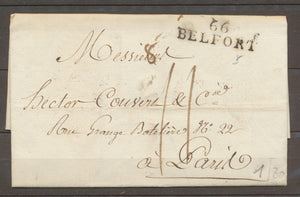 66
BELFORT
Messieurs
8
Hector Couvert & Co
Rue Grange Batelière No. 22
à Paris